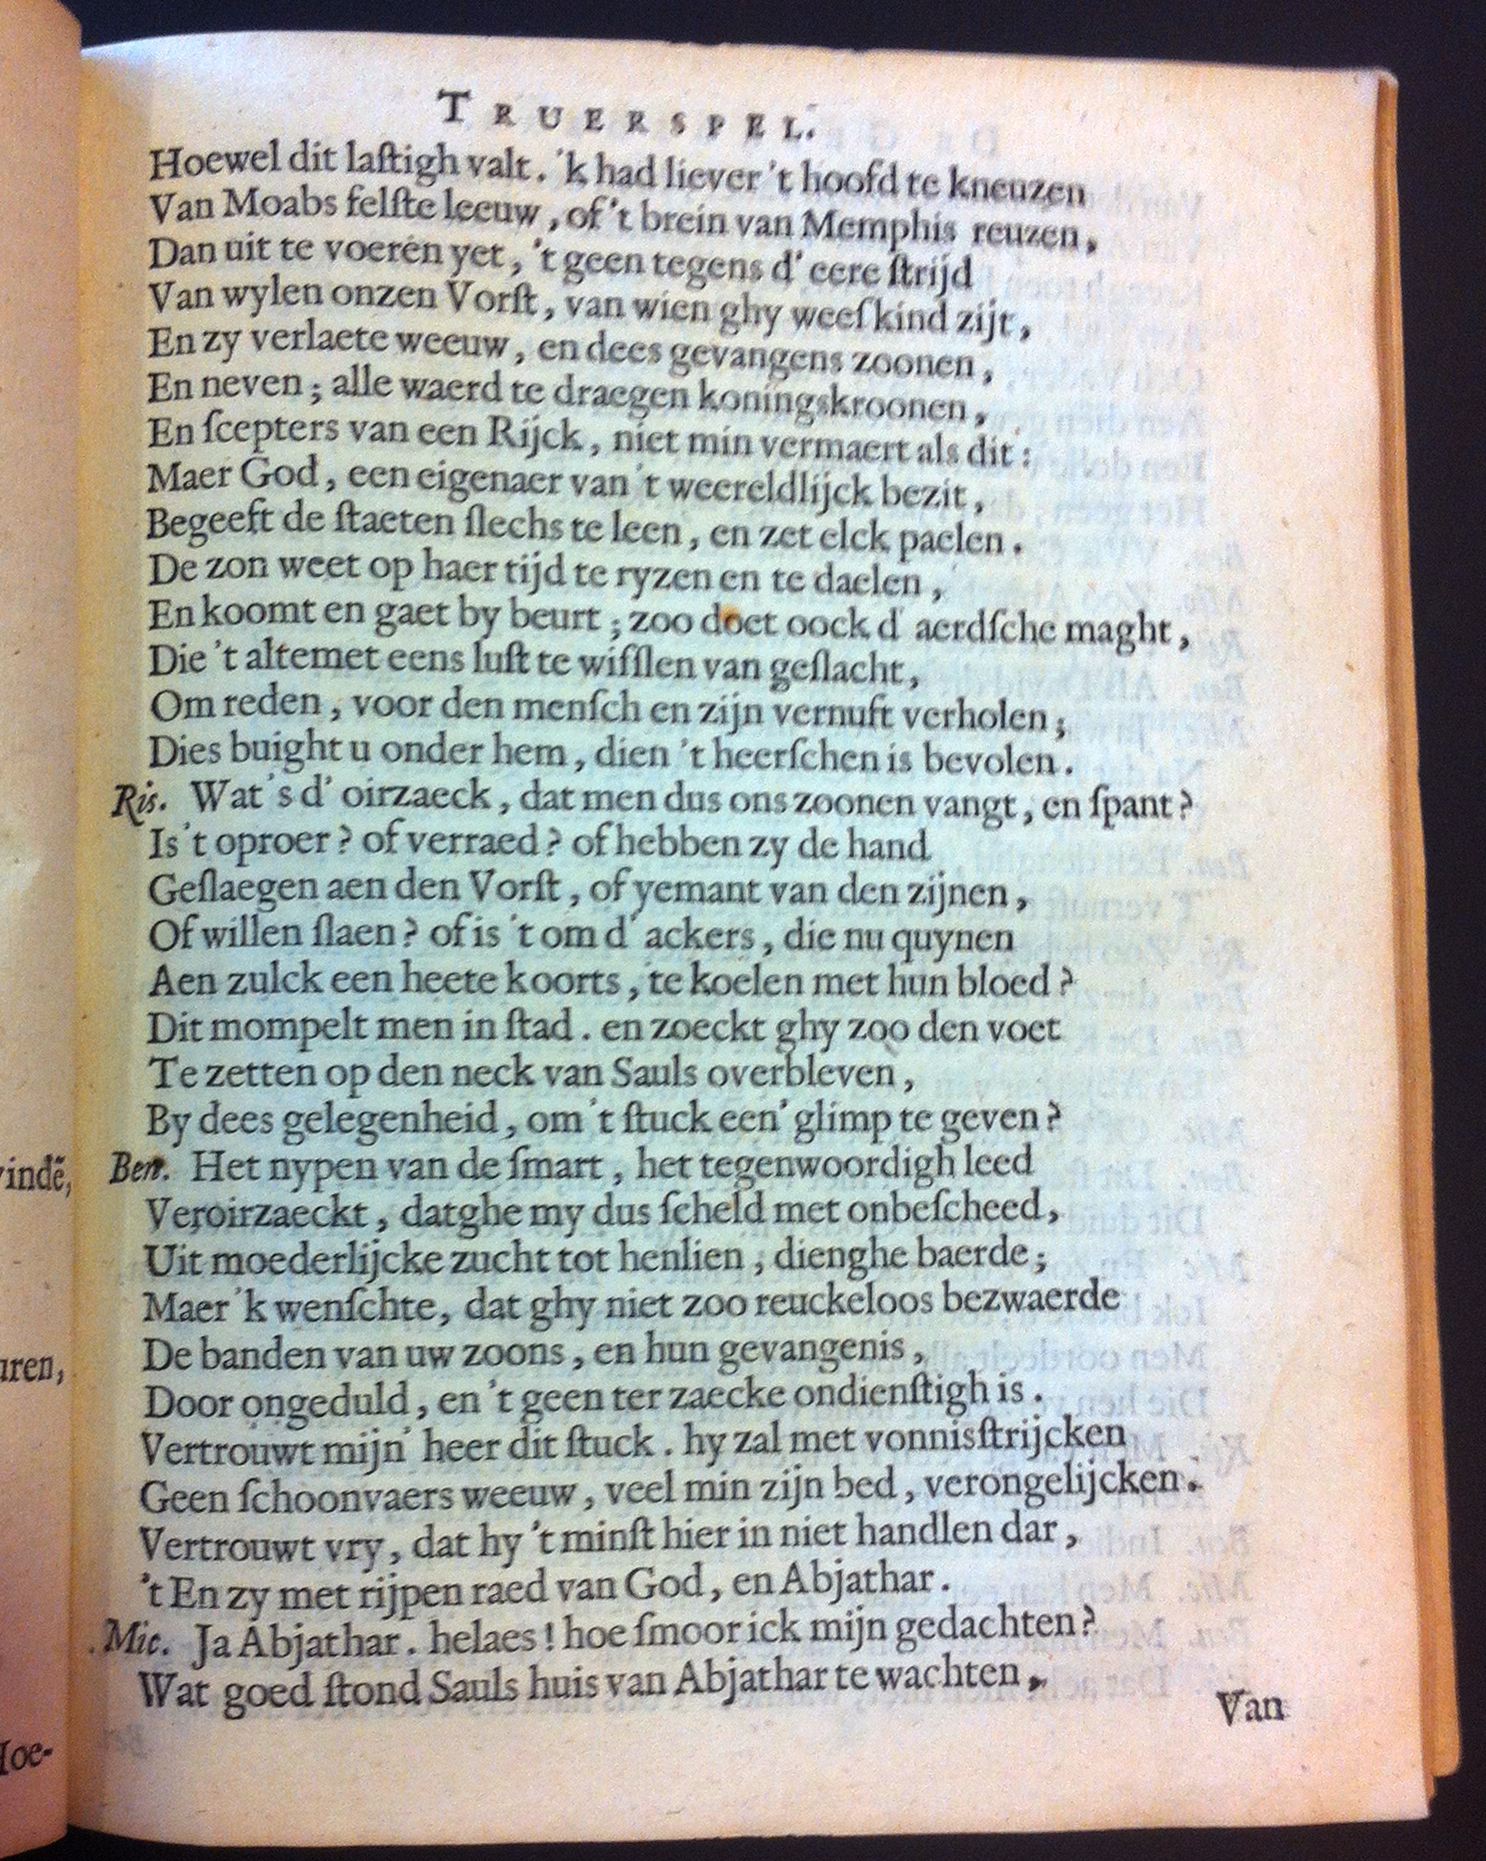 TRUERSPEL.
Hoewel dit laſtigh valt. 'k had liever 't hoofd te kneuzen
Van Moabs felſte leeuw, of 't brein van Memphis reuzen,
Dan uit te voeren yet, 't geen tegens d' eere ſtrijd
Van wylen onzen Vorſt, van wien ghy weeſkind zijt,
En zy verlaete weeuw, en dees gevangens zoonen,
En neven; alle waerd te draegen koningskroonen,
En ſcepters van een Rijck, niet min vermaert als dit:
Maer God, een eigenaer van 't weereldlijck bezit,
Begeeft de ſtaeten ſlechs te leen, en zet elck paelen.
De zon weet op haer tijd te ryzen en te daelen,
En koomt en gaet by beurt; zoo doet oock d' aerdſche maght,
Die 't altemet eens luſt te wiſſlen van geſlacht,
Om reden, voor den menſch en zijn vernuft verholen;
Dies buight u onder hem, dien 't heerſchen is bevolen.
Ris. Wat's d' oirzaeck, dat men dus ons zoonen vangt, en ſpant?
Is 't oproer? of verraed? of hebben zy de hand
Geſlaegen aen den Vorſt, of yemant van den zijnen,
Of willen ſlaen? of is 't om d' ackers, die nu quynen
Aen zulck een heete koorts, te koelen met hun bloed?
Dit mompelt men in ſtad. en zoeckt ghy zoo den voet
Te zetten op den neck van Sauls overbleven,
By dees gelegenheid, om 't ſtuck een' glimp te geven?
Ben. Het nypen van de ſmart, het tegenwoordigh leed
Veroirzaeckt, datghe my dus ſcheld met onbeſcheed,
Uit moederlijcke zucht tot henlien, dienghe baerde;
Maer 'k wenſchte, dat ghy niet zoo reuckeloos bezwaerde
De banden van uw zoons, en hun gevangenis,
Door ongeduld, en 't geen ter zaecke ondienſtigh is.
Vertrouwt mijn' heer dit ſtuck. hy zal met vonnisſtrijcken
Geen ſchoonvaers weeuw, veel min zijn bed, verongelijcken.
Vertrouwt vry, dat hy 't minſt hier in niet handlen dar,
't En zy met rijpen raed van God, en Abjathar.
Mic. Ja Abjathar. helaes! hoe ſmoor ick mijn gedachten?
Wat goed ſtond Sauls huis van Abjathar te wachten,
Van